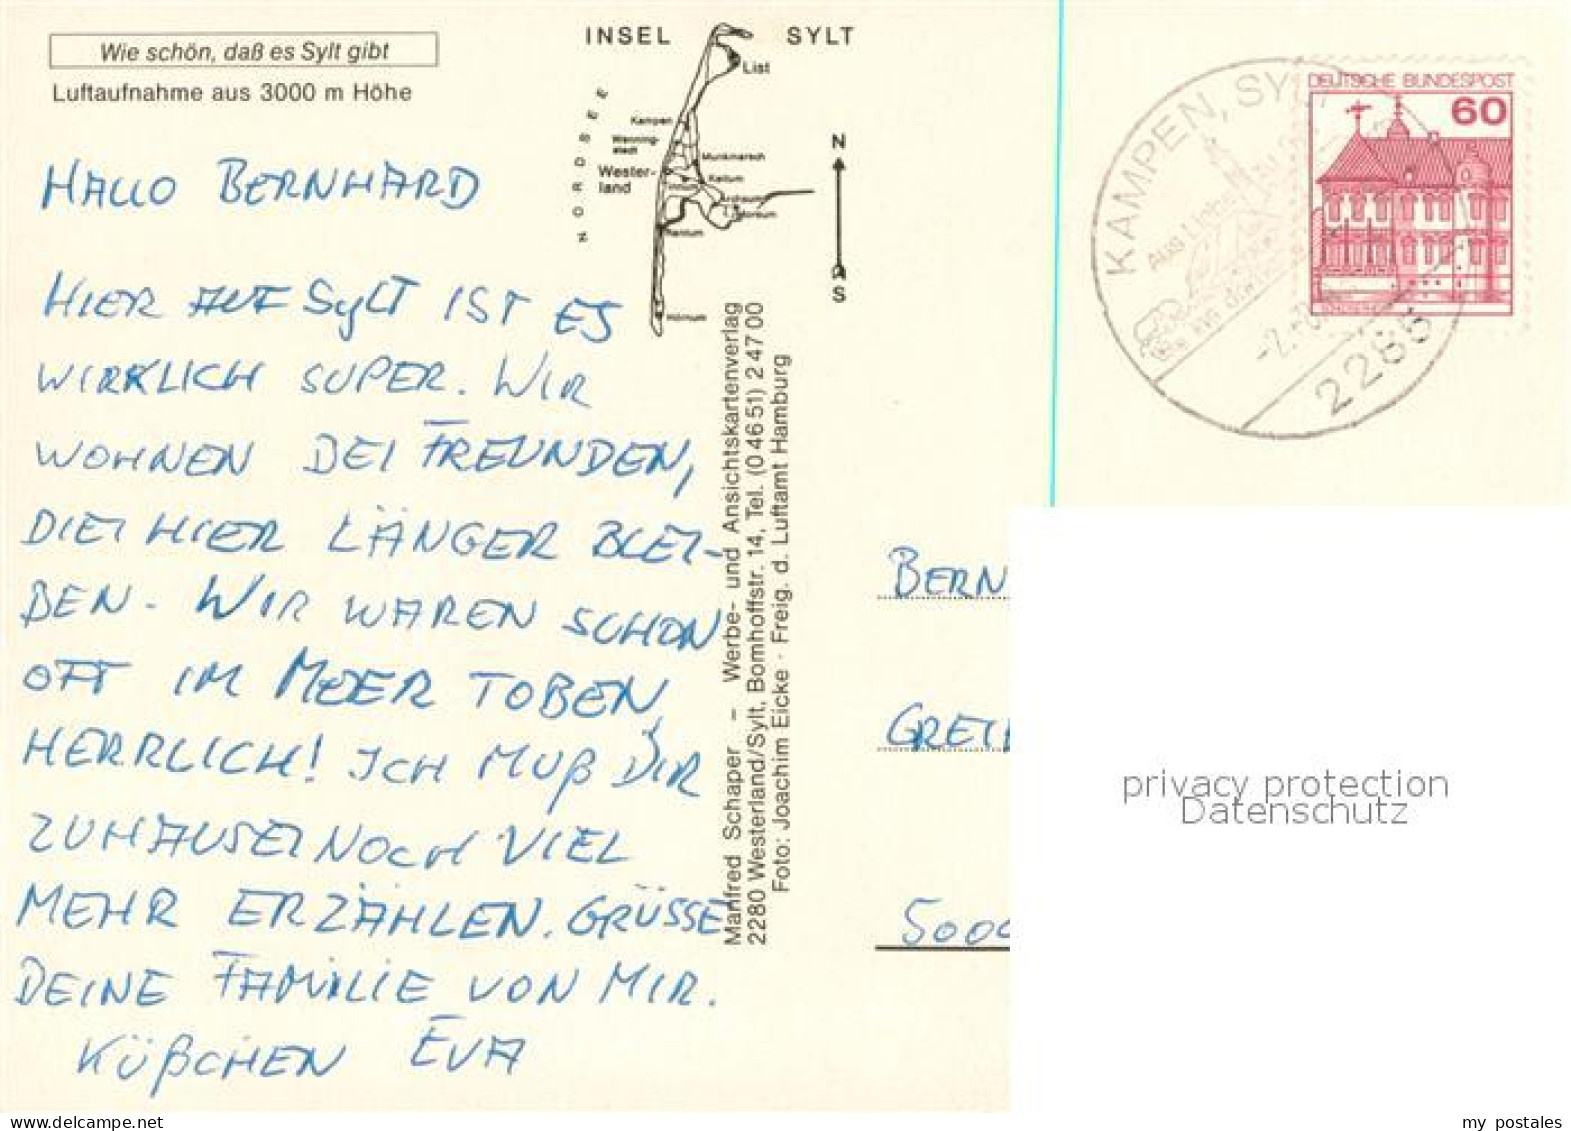 Wie schön, daß es Sylt gibt
Luftaufnahme aus 3000 m Höhe
INSEL SYLT
NORDSEE
List
Kampen
Wenning-
stedt
Wester-
land
Munkmarsch
Keitum
Archsum
Morsum
Rantum
Hörnum
N
S
HALLO BERNHARD
HIER AUF SYLT IST ES
WIRKLICH SUPER. WIR
WOHNEN BEI FREUNDEN,
DIE HIER LÄNGER BLEI-
BEN. WIR WAREN SCHON
OFT IM MEER TOBEN,
HERRLICH! ICH MUß DIR
ZUHAUSE NOCH VIEL
MEHR ERZÄHLEN. GRÜSSE
DEINE FAMILIE VON MIR.
KÜßCHEN EVA
Manfred Schaper – Werbe- und Ansichtskartenverlag
2280 Westerland/Sylt, Bomhoffstr. 14, Tel. (0 46 51) 2 47 00
Foto: Joachim Eicke · Freig. d. Luftamt Hamburg
KAMPEN, SY
Aus Liebe zu
2285
DEUTSCHE BUNDESPOST
60
BERN
GREI
5000
privacy protection
Datenschutz
www.delcampe.net
my_postales